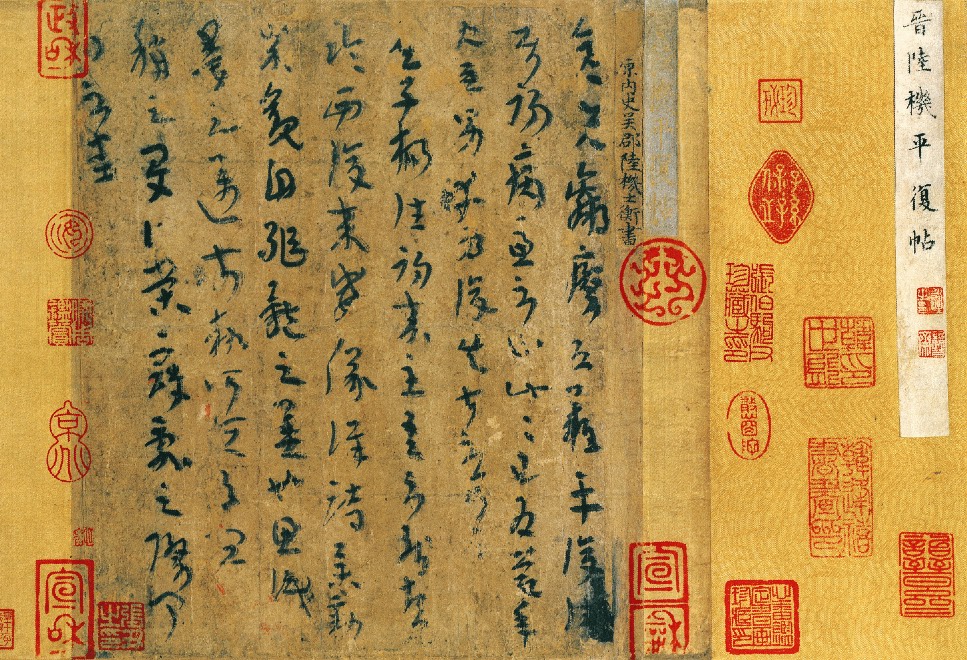 晋陸機平復帖
原内史吳郡陸機士衡書
彥先羸瘵恐難平復往屬
初病慮不止此此已為慶承
使唯男幸為復失前憂耳
吳子楊往初來主吾不能盡
臨西復來威儀詳跱舉動
成觀自軀體之美也思識
量之邁前執所恒有宜
稱之夏伯榮寇亂之際聞
問不悉
政和
宣和
宣和
張伯駒珍藏印